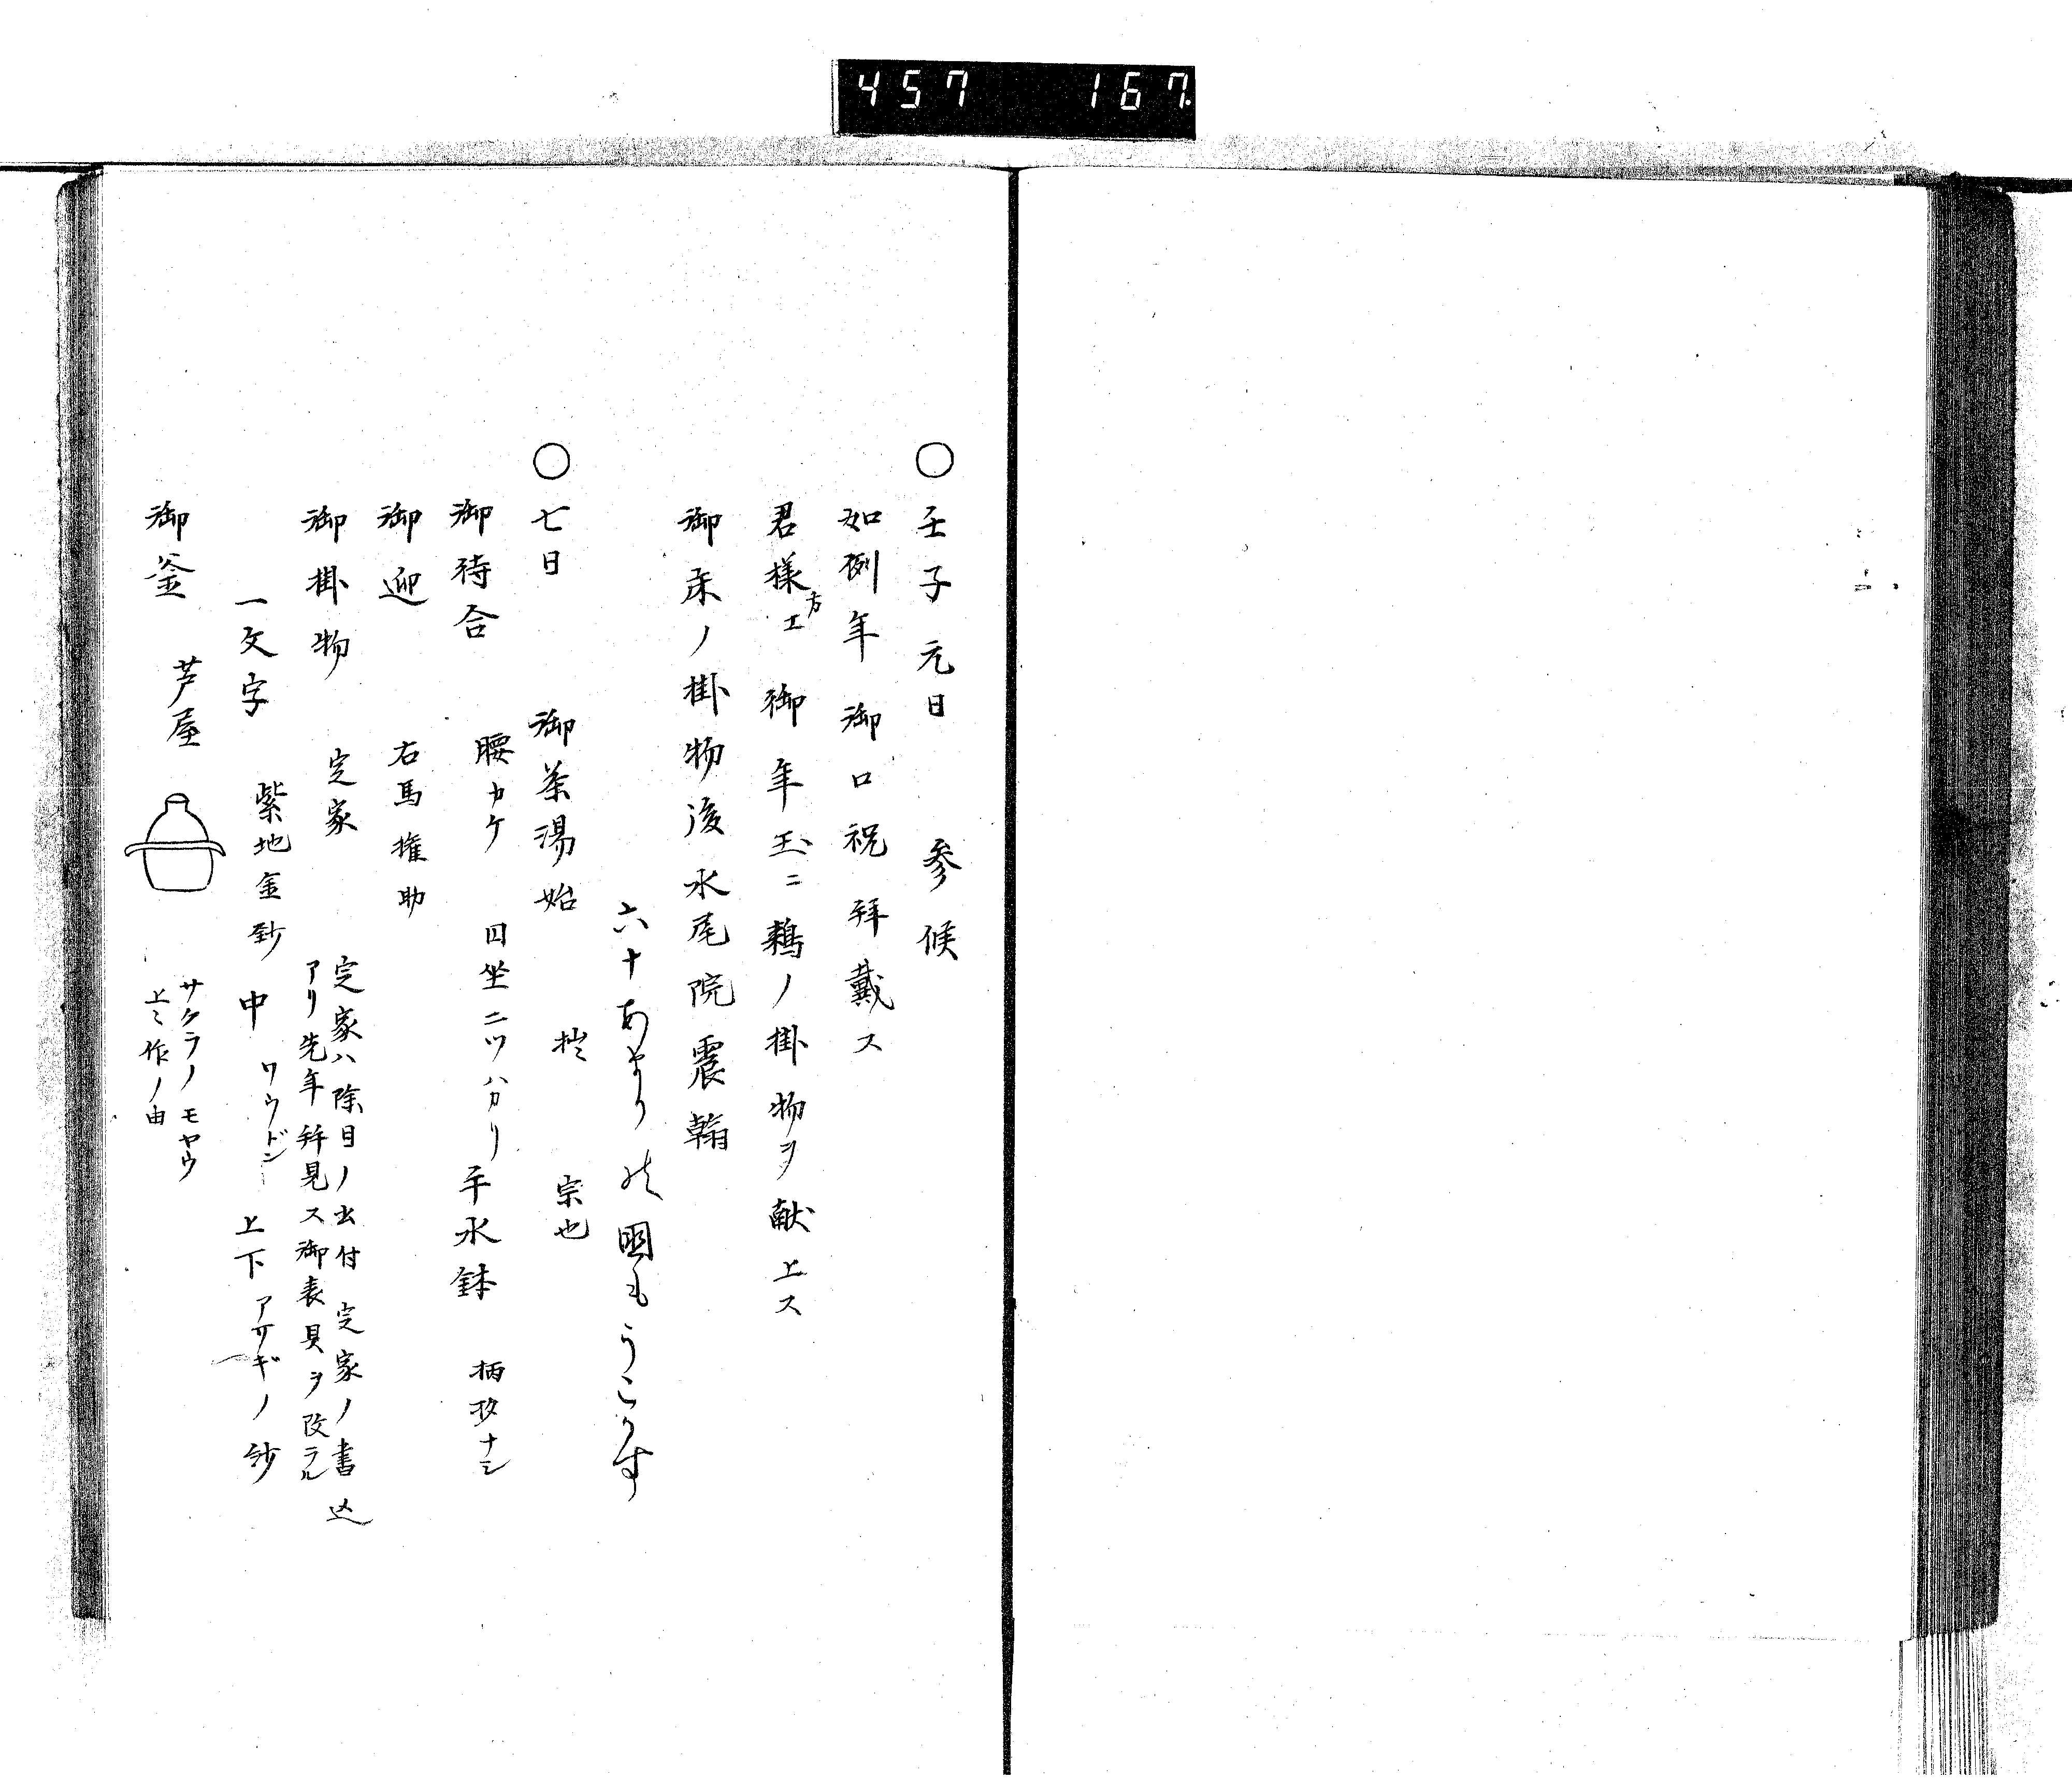 457 167.
○壬子元日 参候
如例年御口祝拜戴ス
君様方エ御年玉ニ鶉ノ掛物ヲ献上ス
御床ノ掛物後水尾院震翰
六十あまりの國もうこかす
○七日 御茶湯始 拙 宗也
御待合 腰カケ 円坐二ツハカリ 手水鉢 柄杓ナシ
御迎 右馬權助
御掛物 定家 定家ハ除目ノ出付定家ノ書込
アリ先年拜見ス御表具ヲ改ラル
一文字 紫地金紗 中 ワウドン 上下 アサギノ紗
御釜 芦屋 サクラノモヤウ
上々作ノ由